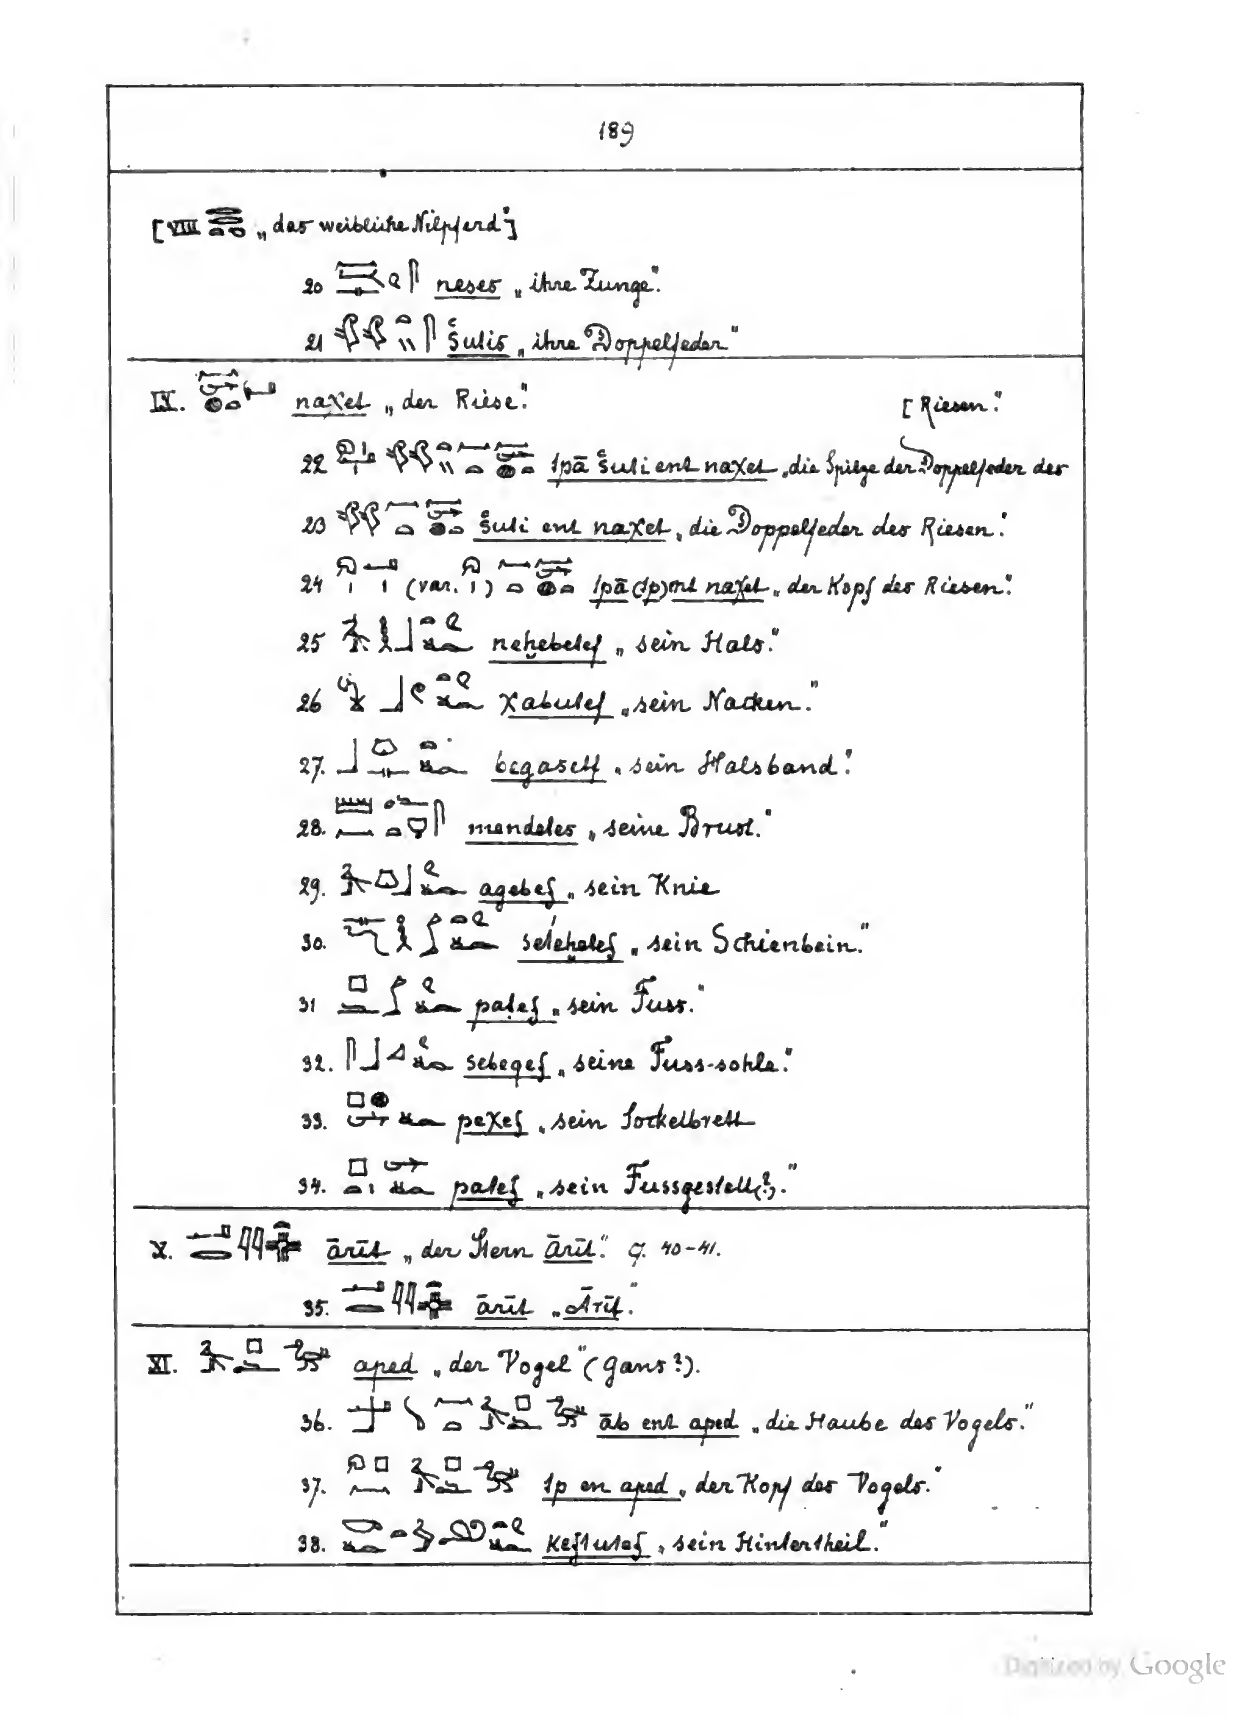 189
[VIII „das weibliche Nilpferd“]
20 neses „ihre Zunge“.
21 šutis „ihre Doppelfeder“
IX. naχet „der Riese“.
[Riesen“.
22 tpā šuti ent naχet „die Spitze der Doppelfeder des
23 šuti ent naχet „die Doppelfeder des Riesen“.
24 (var. ) tpā (tp) nt naχet „der Kopf des Riesen“.
25 neḥebetef „sein Hals“.
26 χabutef „sein Nacken“.
27. begasetf „sein Halsband“.
28. mendetes „seine Brust“.
29. agebef „sein Knie
30. seteḥetef „sein Schienbein“.
31 paṭef „sein Fuss“.
32. sebeqef „seine Fuss-sohle“.
33. peχef „sein Sockelbrett
34. patef „sein Fussgestell(?)“.
X. ārīt „der Stern ārīt“. cf. 40-41.
35. ārīt „Ārīt“.
XI. aped „der Vogel“ (Gans?).
36. āb ent aped „die Haube des Vogels“.
37. tp en aped „der Kopf des Vogels“.
38. keftutef „sein Hintertheil“.
Digitized by Google